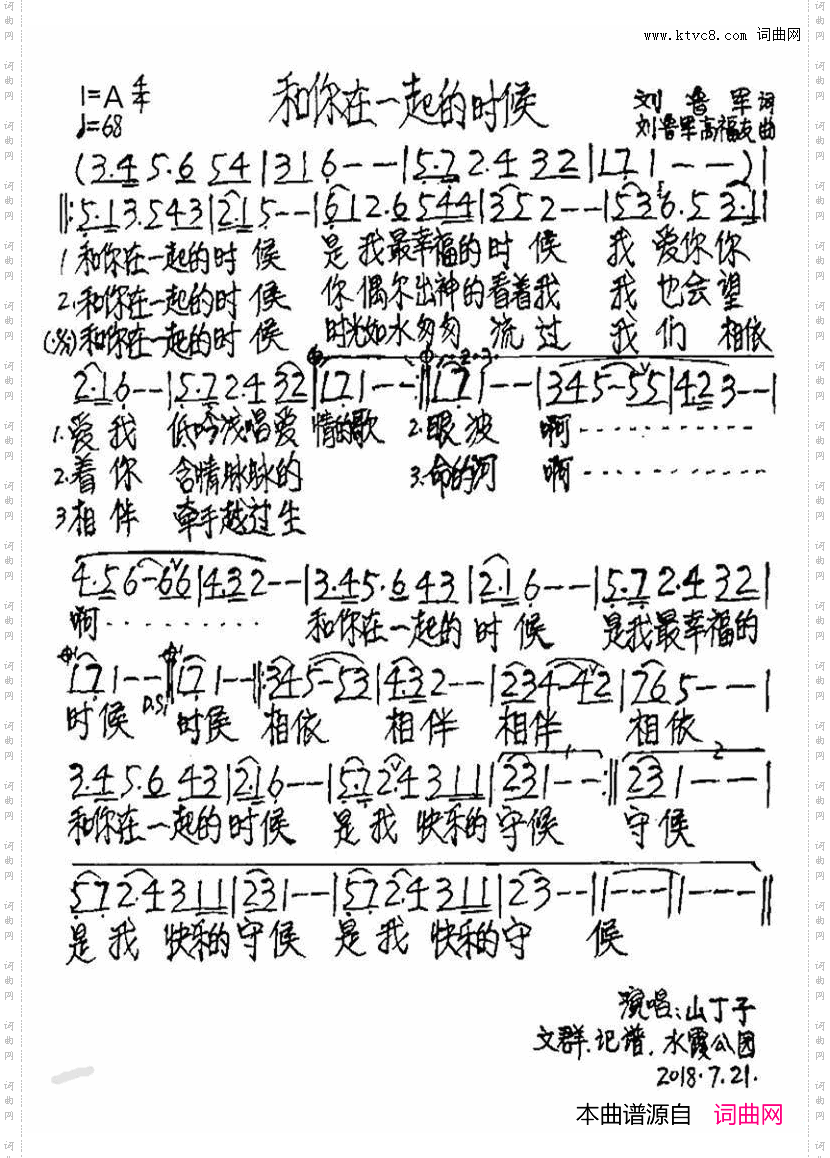 www.ktvc8.com 词曲网
1=A 4/4
♩=68
和你在一起的时候
刘鲁军 词
刘鲁军 高福友 曲
(3.4 5.6 54|31 6--|5.7 2.4 32|17 1--)|
‖:5.1 3.5 43|2.1 5--|61 2.6 544|35 2--|53 6.5 3.11|
1 和你在一起的时候 是我最幸福的时候 我爱你你
2.和你在一起的时候 你偶尔出神的看着我 我也会望
和你在一起的时候 时光如水匆匆流过 我们相依
2.1 6--|5.7 2.4 32|17 1--:‖17 1--|345-55|4.2 3--|
1.爱我 低吟浅唱爱情的歌 2.眼波 啊
2.着你 含情脉脉的 3.命的河 啊
3相伴 牵手越过生
4.56-66|4.32--|3.4 5.6 43|2.1 6--|5.7 2.4 32|
啊 和你在一起的时候 是我最幸福的
17 1--‖17 1--‖:345-53|4.3 2--|234-42|76 5---|
时候 D.S. 时候 相依 相伴 相伴 相依
3.4 5.6 43|2.1 6--|57 2.4 311|231--:‖231---|
和你在一起的时候 是我快乐的守候 守候
57 2.4 311|231--|57 2.4 311|23--|1---|1---‖
是我快乐的守候 是我快乐的守候
演唱:山丁子
文群.记谱.水霞公园
2018.7.21.
本曲谱源自 词曲网